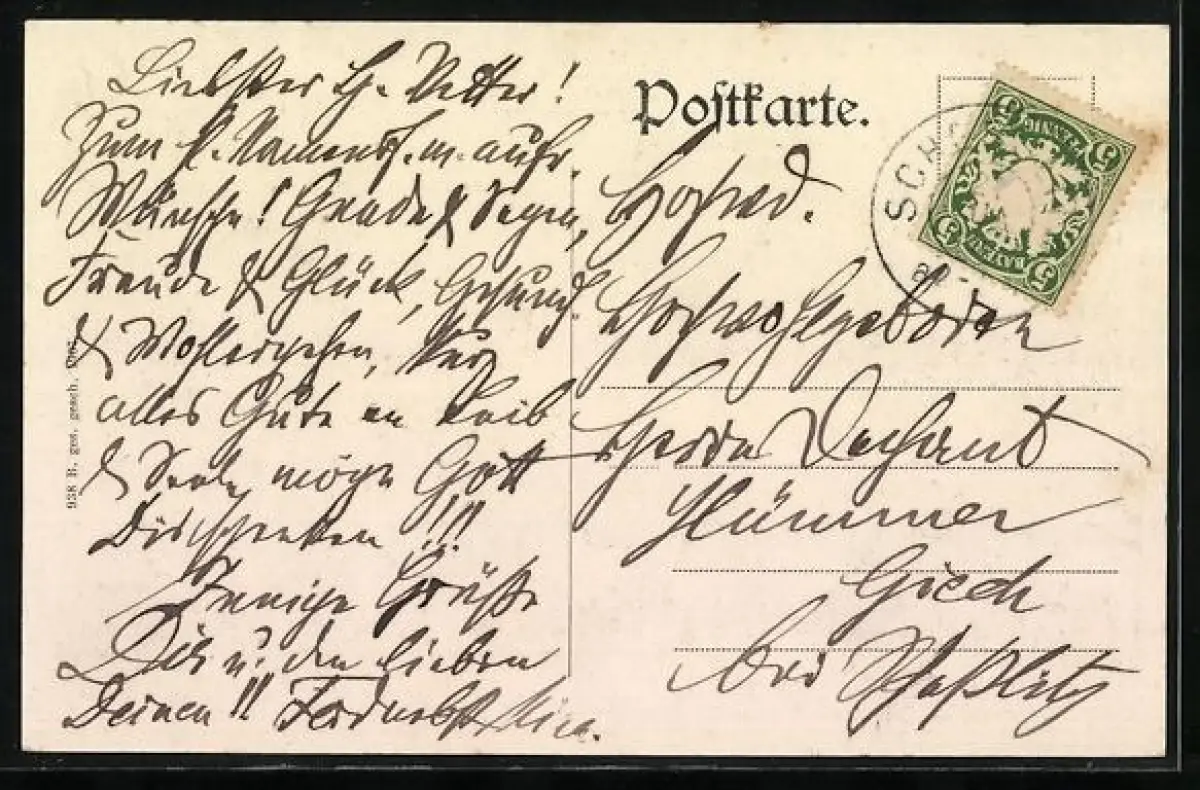 Liebster H. Vetter!
Zum h. Namensf. m. aufr.
Wünsche! Gnade & Segen,
Freude & Glück, Gesund.
& Wohlergehen, Kurz
alles Gute an Leib
& Seele, möge Gott
Dir schenken!!!
Innige Grüße
Dir u. den lieben
Deinen!!
938 R. ges. gesch.
Postkarte.
Hochw.
Hochwohlgeboren
Herrn Dechant
Hümmer
Giech
bei Scheßlitz
5 PFENNIG 5
5 BAYERN 5
SCH